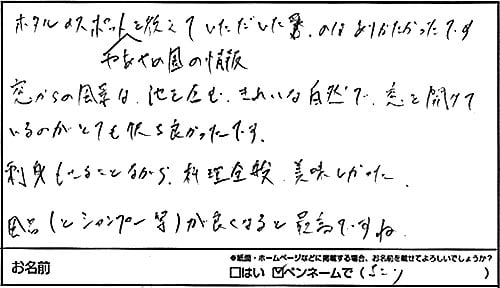 ホタルのスポットを教えていただいた のはありがたかったです
やあやの国の情報
窓からの風景は、池を臨む、きれいな自然で、窓を開けて
いるのがとても気持ち良かったです。
刺身もさることながら、料理全般、美味しかった。
(とシャンプー等)が良くなると最高ですね。
お名前
●紙面・ホームページなどに掲載する場合、お名前を載せてよろしいでしょうか?
□はい ☑ペンネームで(     )